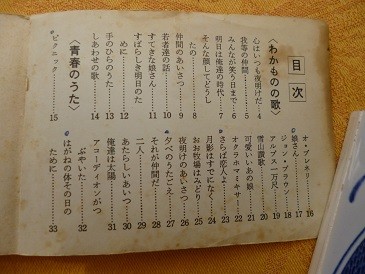 目次
〈わかものの歌〉
心はいつも夜明けだ 4
我等の仲間 5
みんなが笑う日まで 6
明日は俺達の時代 7
そんな顔してどうし
たの 8
仲間のあいさつ 9
若者達の話 10
すてきな娘さん 11
すばらしき明日のた
めに 12
手のひらのうた 13
しあわせの歌 14
〈青春のうた〉
ピクニック 15
オ・ブレネリ 16
娘さん 17
ジョン・ブラウン 18
アルプス一万尺 19
雪山讃歌 20
可愛いいあの娘 21
オクラホマミキサー 22
さらば恋人よ 23
月影はすでになく 24
おお牧場はみどり 25
夜明けのあいさつ 26
夕べのうたごえ 27
それが仲間だ 28
二人 29
あたらしいあいつ 30
俺達は太陽 31
アコーディオンがつ
ぶやいた 32
はがねの体その日の
ために 33